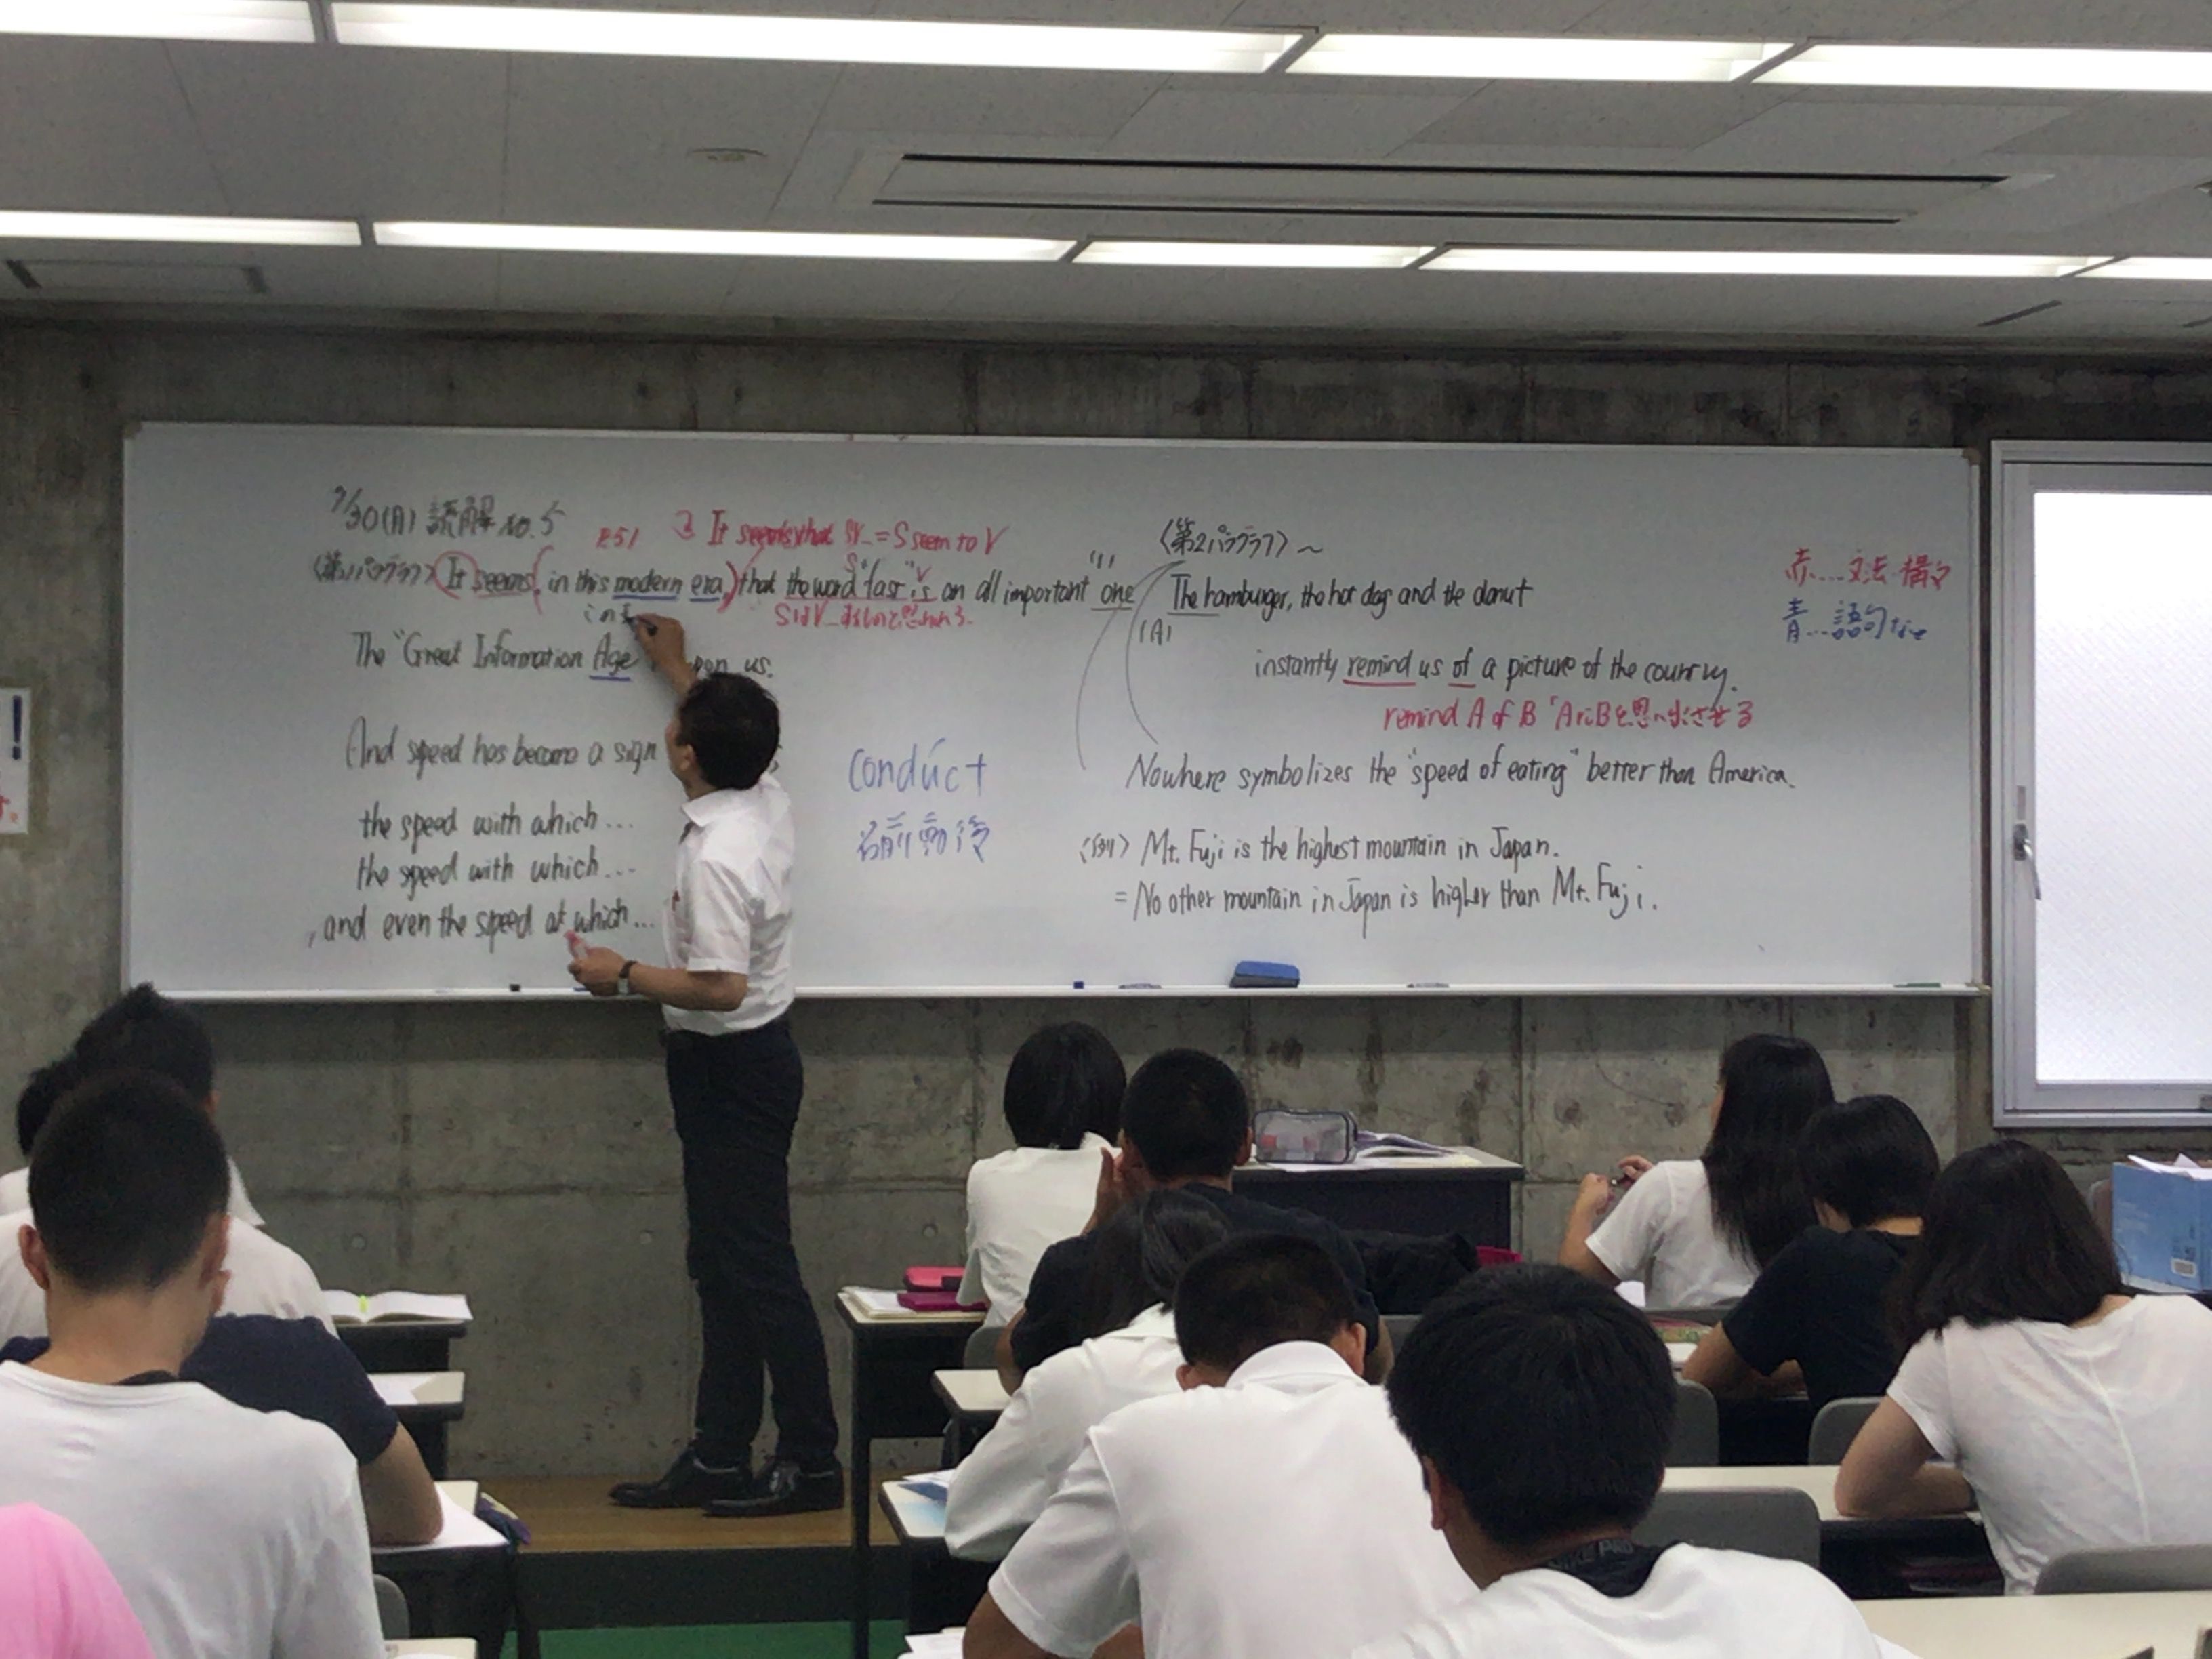 7/30(A) 読解 No.5
P.51 It seems that SV = S seem to V
〈第1パラグラフ〉 It seems, in this modern era, that the word "fast" is an all important "one
(1)
S V
SはV
The "Great Information Age upon us.
And speed has become a sign
the speed with which...
the speed with which...
, and even the speed at which...
conduct
名前動後
〈第2パラグラフ〉~
The hamburger, the hot dog and the donut
(A)
instantly remind us of a picture of the country.
remind A of B 「AにBを思い出させる
Nowhere symbolizes the "speed of eating" better than America.
〈例〉 Mt. Fuji is the highest mountain in Japan.
= No other mountain in Japan is higher than Mt. Fuji.
赤...文法 構文
青...語句
!